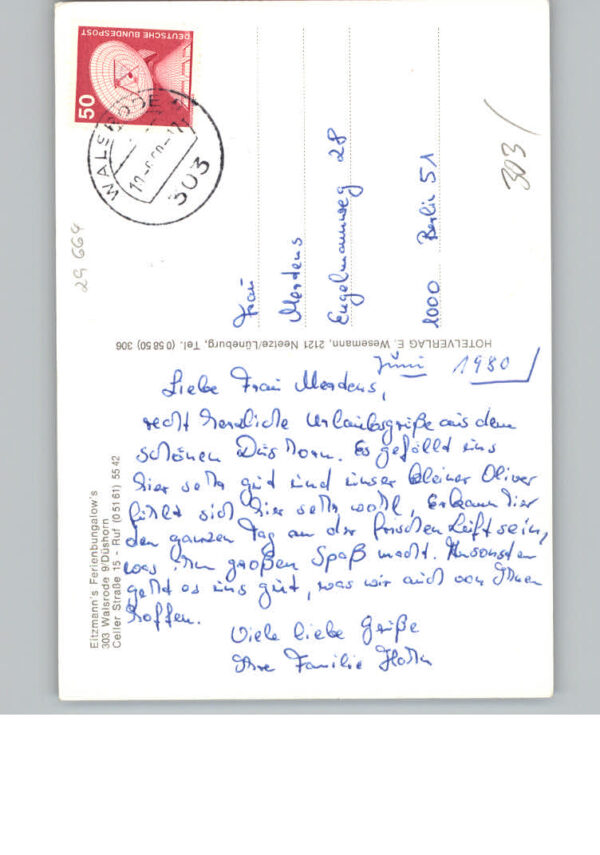 DEUTSCHE BUNDESPOST
50
WALSRODE
303
303/
29 664
Frau
Mordens
Engelmannweg 28
1000 Berlin 51
HOTELVERLAG E. Wesemann, 2121 Neetze/Lüneburg, Tel. (0 58 50) 306
Juni 1980
Liebe Frau Mordens,
recht herzliche Urlaubsgrüße aus dem
schönen Düshorn. Es gefällt uns
hier sehr gut und unser kleiner Oliver
fühlt sich hier sehr wohl, Er kann hier
den ganzen Tag an der frischen Luft sein,
was ihm großen Spaß macht. Ansonsten
geht es uns gut, was wir auch von Ihnen
hoffen.
Viele liebe Grüße
Ihre Familie
Eitzmann's Ferienbungalow's
303 Walsrode 9/Düshorn
Celler Straße 15 - Ruf (0 51 61) 55 42